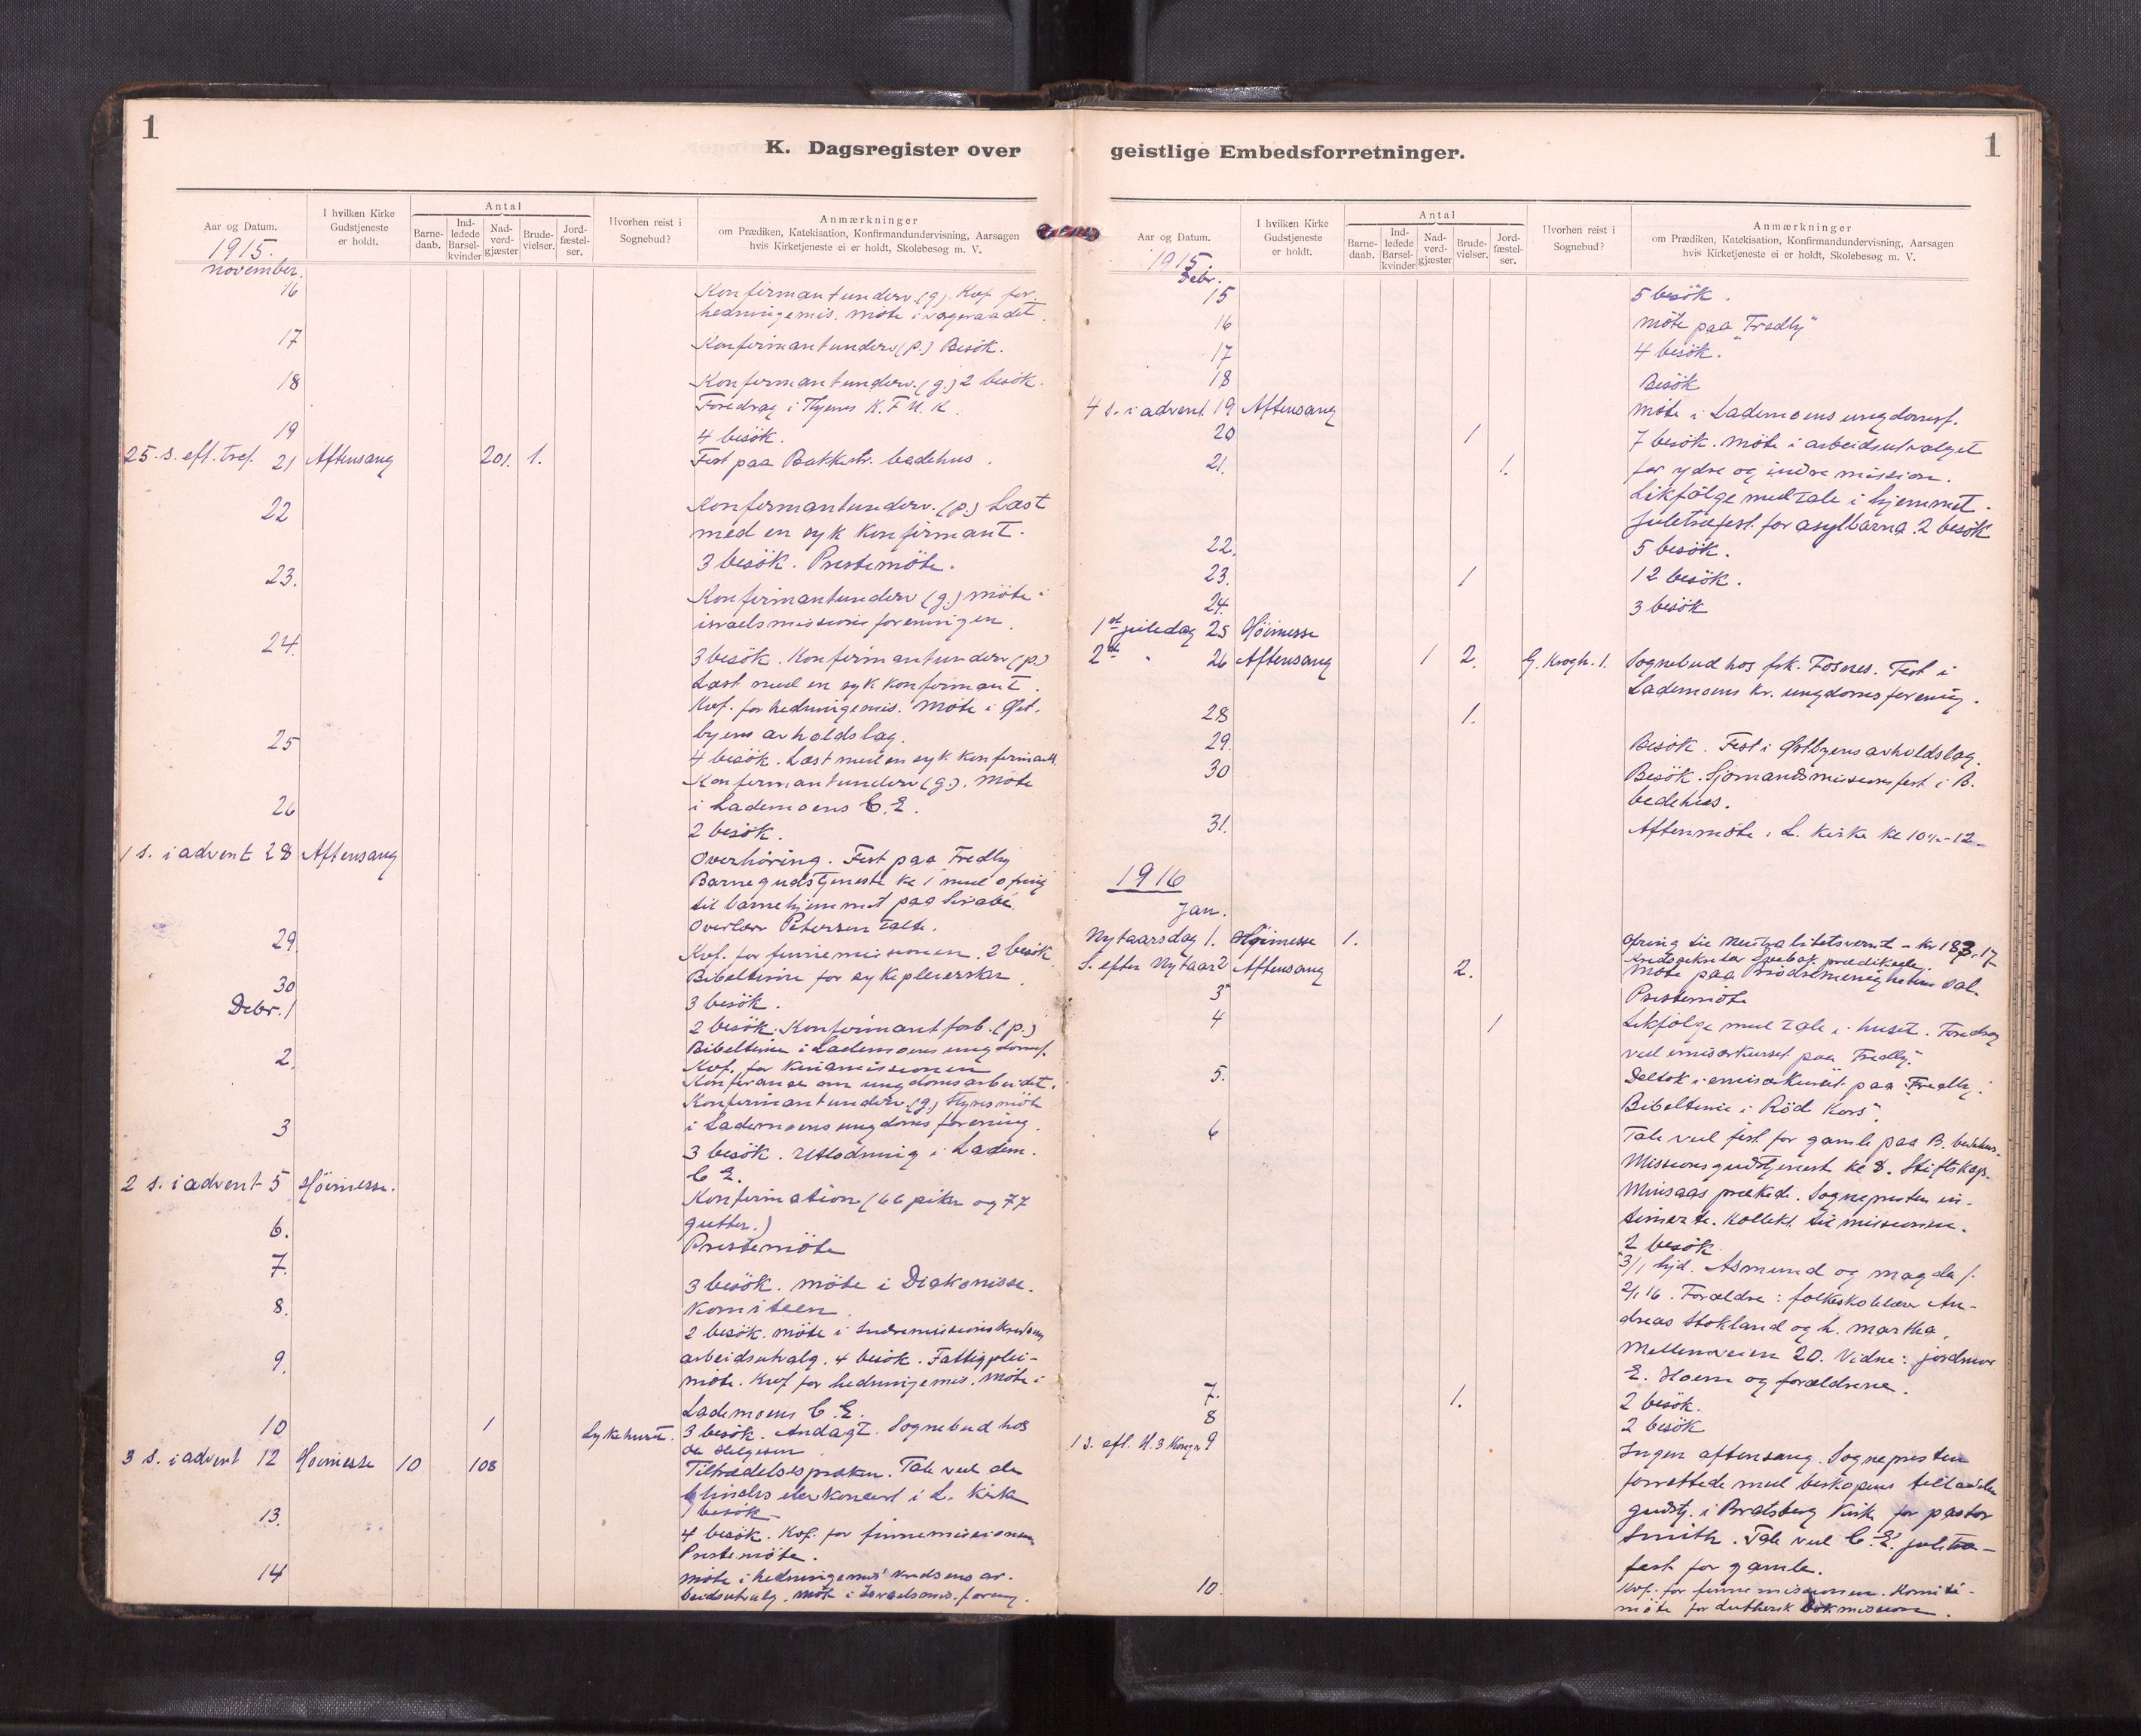 1
K. Dagsregister over
Aar og Datum.
I hvilken Kirke Gudstjeneste er holdt.
Antal
Barne-daab.
Ind-ledede Barsel-kvinder
Nad-verd-gjæster
Brude-vielser.
Jord-fæstel-ser.
Hvorhen reist i Sognebud?
Anmærkninger
om Prædiken, Katekisation, Konfirmandundervisning, Aarsagen
hvis Kirketjeneste ei er holdt, Skolebesøg m. V.
1915.
november.
16 Konfirmantunderv. (g). Kvf. for
hedningemis. möte i
17 Konfirmantunderv (p.) Besök.
18 Konfirmantunderv. (g.) 2 besök.
Foredrag i Byens K.F.U.K.
19 4 besök.
25. s. eft. tref. 21 Aftensang 201. 1. Fest paa Bakkestr. bedehus.
22 Konfirmantunderv. (p.) Læst
med en syk konfirmant.
3 besök. Prestemöte.
23. Konfirmantunderv (g.) möte i
israelsmissionsforeningen.
24. 3 besök. Konfirmantunderv (p.)
Læst med en syk konfirmant.
Kvf. for hedningemis. Möte i Øst-
byens avholdslag.
25 4 besök. Læst med en syk konfirmant
Konfirmantunderv (g.). Möte
i Lademoens C.E.
26 2 besök.
1 s. i advent 28 Aftensang Overhöring. Fest paa Fredly
Barnegudstjeneste kl 1 med ofring
til barnehjemmet paa
Overlær Petersen talte.
29. Kvf. for finnemissionen. 2 besök
Bibeltime for sykepleiersker.
30 3 besök.
Debr. 1 2 besök. Konfirmantforb. (p.)
Bibeltime i Lademoens ungdomsf.
2. Kvf. for Kinamissionen
Konferanse om ungdomsarbeidet.
Konfirmantunderv. (g.) Styresmöte
i Lademoens ungdomsforening.
3 3 besök. Utlodning i Ladem.
C.E.
2 s. i advent 5 Höimesse. Konfirmation (66 piker og 77
gutter.)
6. Prestemöte
7. 3 besök. möte i Diakonisse-
komiteen.
8. 2 besök. möte i Indremissionskredsens
arbeidsutvalg. 4 besök. Fattigplei-
9. möte. Kvf for hedningemis. Möte i
Lademoens C.E.
10 1 Sykehuset. 3 besök. Andagt. Sognebud hos
Helgesen
3 s. i advent 12 Höimesse 10 108 Tiltrædelsespræken. Tale ved de
blindes konsert i L. Kirke
1 besök
13. 4 besök. Kvf. for finnemissionen
Prestemöte.
14 Möte i hedningemis' kredsens ar-
beidsutvalg. Möte i Israelsmis. foreng.
1
geistlige Embedsforretninger.
Aar og Datum.
I hvilken Kirke Gudstjeneste er holdt.
Antal
Barne-daab.
Ind-ledede Barsel-kvinder
Nad-verd-gjæster
Brude-vielser.
Jord-fæstel-ser.
Hvorhen reist i Sognebud?
Anmærkninger
om Prædiken, Katekisation, Konfirmandundervisning, Aarsagen
hvis Kirketjeneste ei er holdt, Skolebesøg m. V.
1915.
Debr.
15 5 besök.
16 möte paa "Fredly"
17 4 besök.
18 Besök
4 s. i advent 19 Aftensang möte i Lademoens ungdomsf.
20 1 7 besök. möte i arbeidsutvalget
for ydre og indre mission.
21. 1. Likfölge med tale i hjemmet.
Juletræfest for asylbarna. 2 besök
22. 5 besök.
23. 1 12 besök.
24. 3 besök
1st juledag 25 Höimesse
2den " 26 Aftensang 1 2. G. Krogh. 1. Sognebud hos frk. Fosnes. Fest i
Lademoens kr. ungdomsforening.
28 1.
29. Besök. Fest i Østbyens avholdslag.
30 Besök. Sjömandsmissionsfest i B.
bedehus.
31. Aftenmöte i L. kirke kl 10 - 12
1916
Jan.
Nytaarsdag 1. Höimesse 1. Ofring til Nøitralitetsvernet - kr 187.17
S. efter Nytaar 2 Aftensang 2. Kredssekretær prædikede.
Möte paa Brödremenighetens sal.
3 Prestemöte
4 1 Likfölge med tale i huset. Foredrag
ved emisærkurset paa "Fredly".
5. Deltok i emisærkurset paa "Fredly".
Bibeltime i "Röd Kors".
6 Tale ved fest for gamle paa B. bedehus.
Missionsgudstjeneste kl 8. Stiftskap.
Minsaas prækede. Sognepresten in-
timerte. Kollekt til missionen.
2 besök
3/1 hjd. Asmund og Magda f.
2/1 16. Forældre: folkeskolelærer An-
dreas Stokland og h. Martha,
Mellemveien 20. Vidne: jordmor
E. Hoem og forældrene.
7. 1. 2 besök.
8 2 besök
1 s. eft. H. 3 Kong. 9 Ingen aftensang. Sognepresten
forrettede med biskopens tilladelse
gudstj. i Bratsberg Kirke for pastor
Smith. Tale ved C.E. juletræ-
fest for gamle.
10. Kvf. for finnemissionen. Komité-
möte for Luthersk Bokmission.